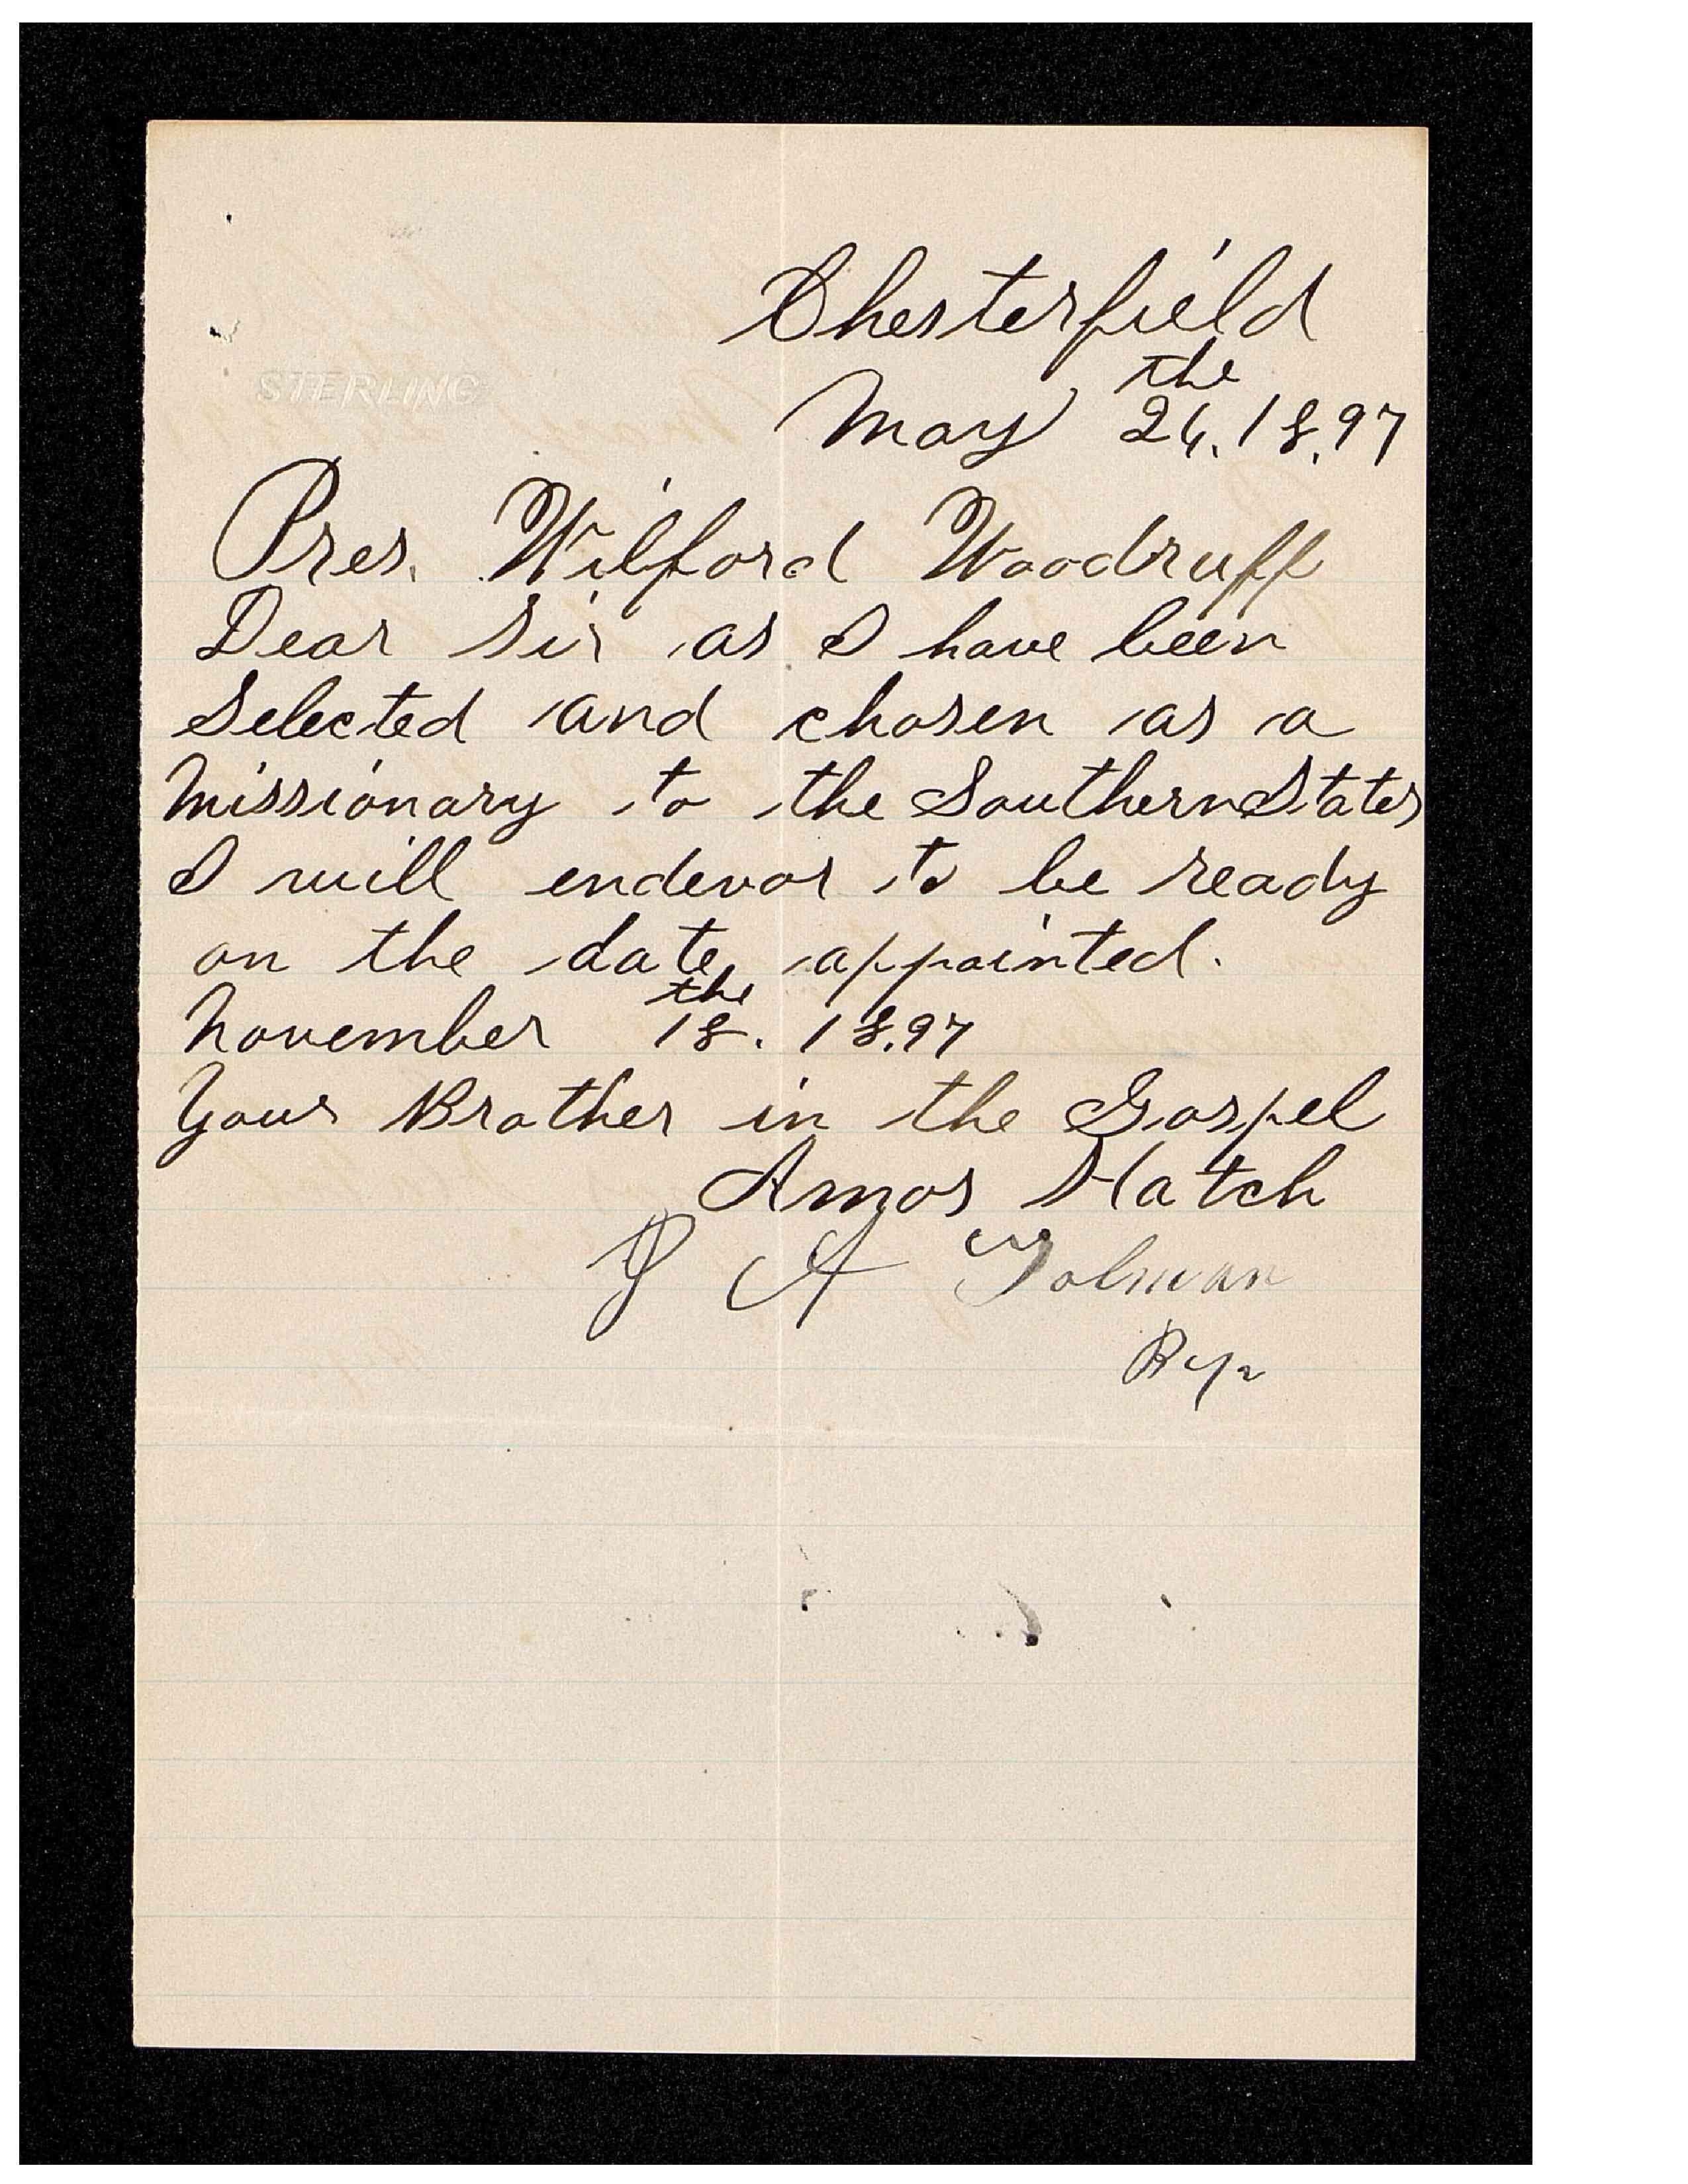 STERLING
Chesterfield
the
May 26. 18.97
Pres. Wilford Woodruff
Dear Sir as I have been
Selected and chosen as a
Missionary to the Southern States
I will endevor to be ready
on the date appointed.
the
November 18. 18.97
Your Brother in the Gospel
Amos Hatch
J A Tolman